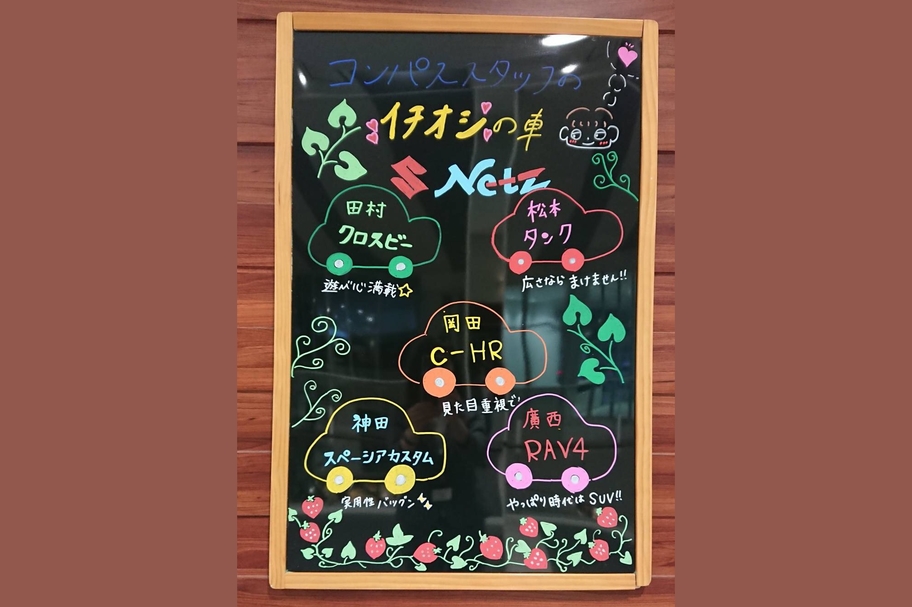 コンパススタッフの
イチオシの車
Netz
田村
クロスビー
遊べ心満載☆
松本
タンク
広さなら まけません!!
岡田
C-HR
見た目重視で
神田
スペーシアカスタム
実用性バツグン
廣西
RAV4
やっぱり時代は SUV!!